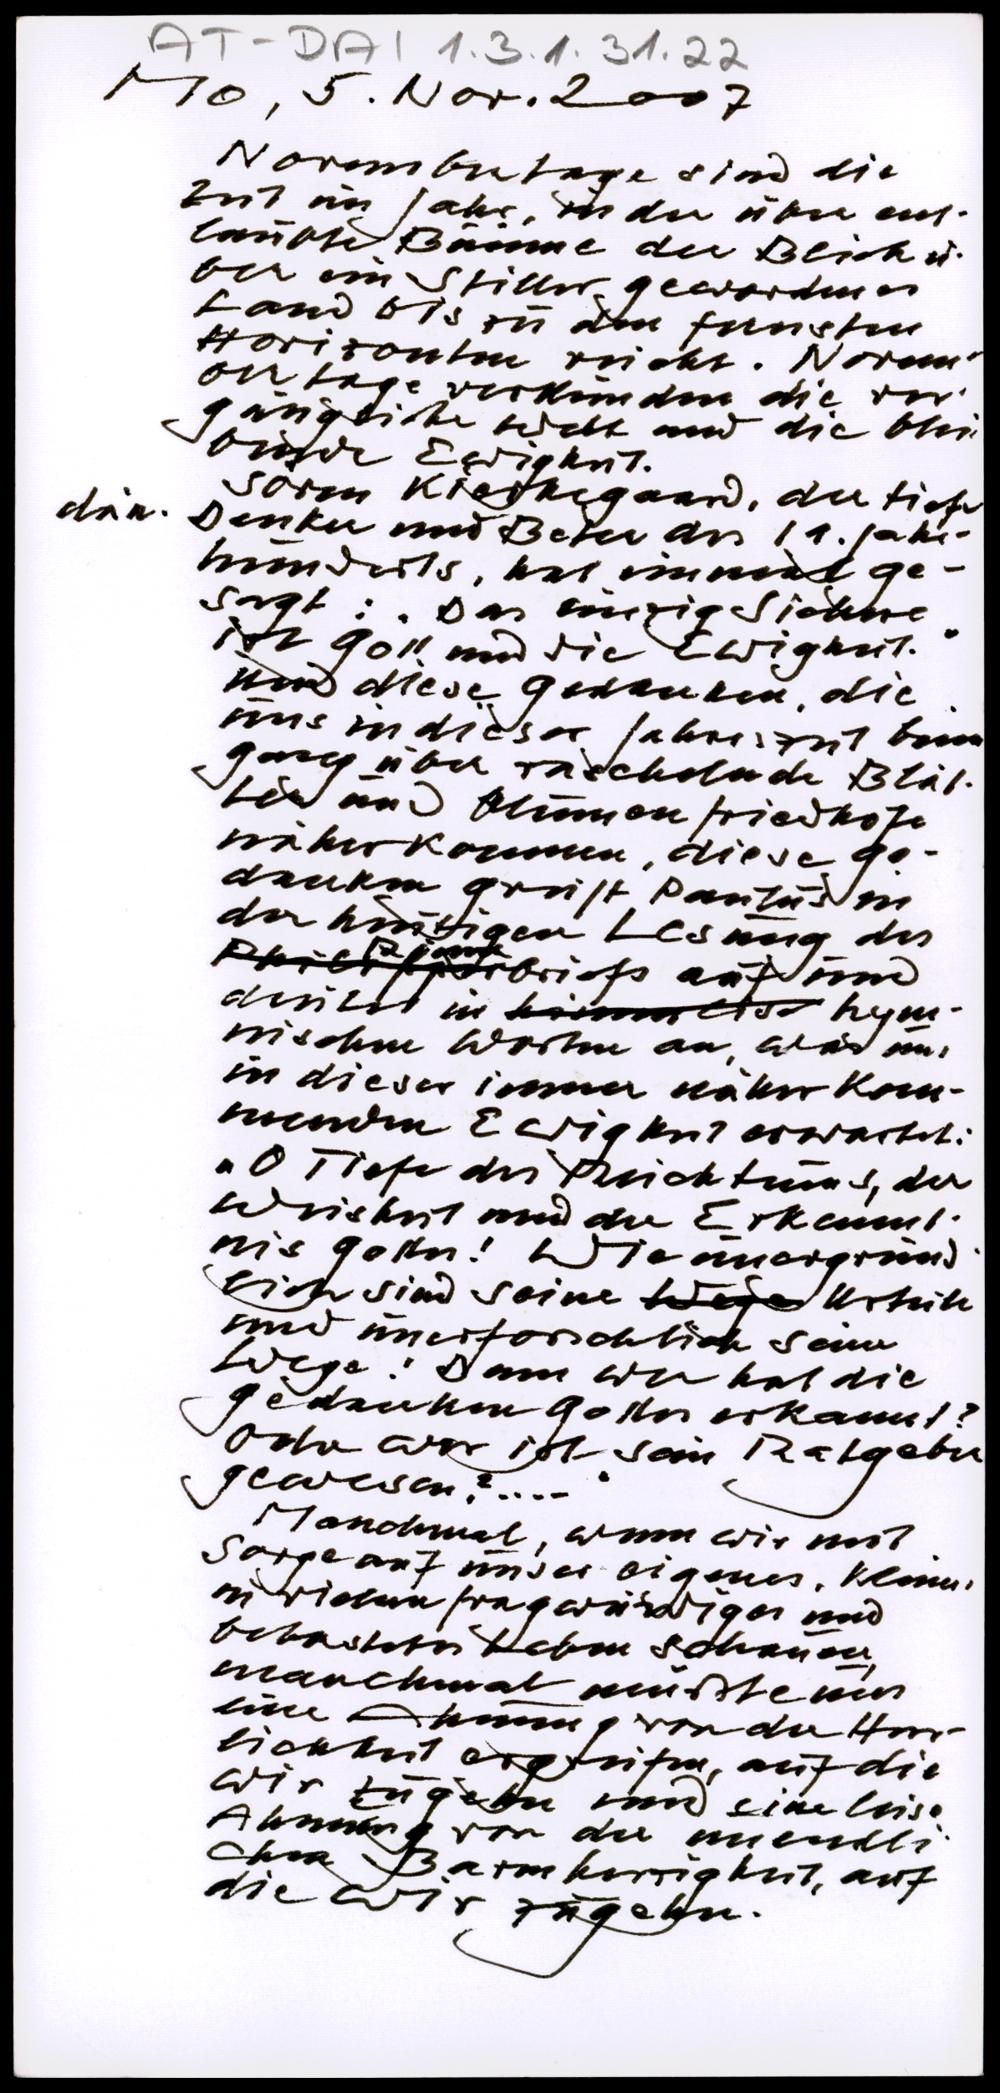 AT-DAI 1.3.1.31.22
Mo, 5. Nov. 2007
Novembertage sind die
Zeit im Jahr, in der über ent-
laubte Bäume der Blick ü-
ber ein stiller gewordenes
Land bis zu den fernsten
Horizonten reicht. Novem-
bertage verkünden die ver-
gängliche Welt und die blei-
bende Ewigkeit.
Sören Kierkegaard, der tiefe
dän. Denker und Beter des 19. Jahr-
hunderts, hat einmal ge-
sagt: „Das einzig Sichere
ist Gott und die Ewigkeit."
Und diese Gedanken, die
uns in dieser Jahreszeit beim
Gang über raschelnde Blät-
ter und Blumenfriedhöfe
näherkommen, diese Ge-
danken greift Paulus in
der heutigen Lesung des
Philipper Römerbriefs auf und
deutet in himmlisch hym-
nischen Worten an, was uns
in dieser immer näher kom-
menden Ewigkeit erwartet:
„O Tiefe des Reichtums, der
Weisheit und der Erkennt-
nis Gottes! Wie unergründ-
lich sind seine Wege Urteile
und unerforschlich seine
Wege! Denn wer hat die
Gedanken Gottes erkannt?
Oder wer ist sein Ratgeber
gewesen?...."
Manchmal, wenn wir mit
Sorge auf unser eigenes, kleines,
in vielem fragwürdiges und
belastetes Leben schauen,
manchmal müßte uns
eine Ahnung von der Herr-
lichkeit ergreifen, auf die
wir zugehen und eine leise
Ahnung von der unendli-
chen Barmherzigkeit, auf
die wir zugehen.